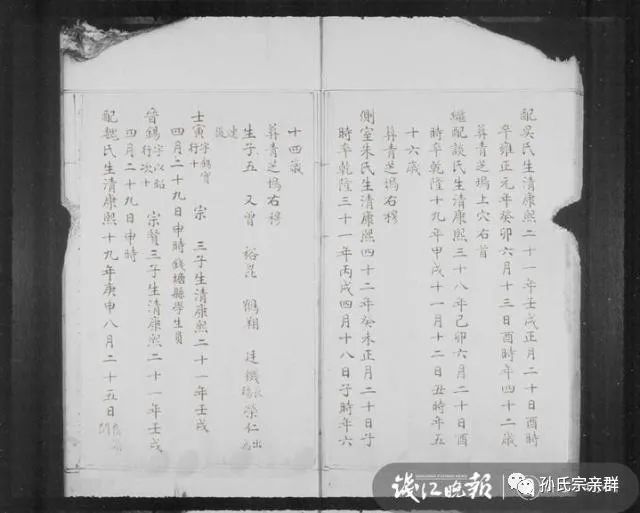 配吳氏生清康熙二十一年壬戌正月二十日酉時
卒雍正元年癸卯六月十三日酉時年四十二歲
葬青芝塢上穴右首
繼配談氏生清康熙三十八年己卯六月二十日酉
時卒乾隆十九年甲戌十一月十二日丑時年五
十六歲
葬青芝塢右穆
側室朱氏生清康熙四十二年癸未正月二十日子
時卒乾隆三十一年丙戌四月十八日子時年六
十四歲
葬青芝塢右穆
生子五 又曾 裕昆 鶴翔 廷機 榮仁
壬寅 字錫寶 行十 宗 三子生清康熙二十一年壬戌
四月二十九日申時錢塘縣學生員
晉錫 字以昭 行次十 宗賢三子生清康熙二十一年壬戌
四月二十九日申時
配魏氏生清康熙十九年庚申八月二十五日
钱江晚报
孙氏宗亲群